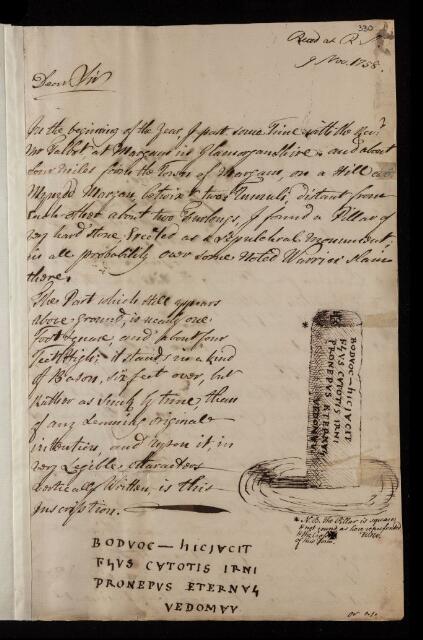 330
Read at R S
9 Nov. 1758.
Dear Sir
In the beginning of the Year, I past some Time with the Rev.d
Mr Talbot at Margam in Glamorganshire and about
four miles from the Town of Margam, on a Hill
Mynydd Margam, betwixt two Tumuli, distant from
Each other about two Furlongs, I found a Pillar of
very hard Stone, Erected as a Sepulchral Monument,
in all probability over some Noted Warrior Slain
there.
The Part which still appears
above ground, is nearly one
foot Square, and about four
feet High: it stands in a kind
of Bason, six feet over, but
Rather as Sunk by time than
of any original
intention, and upon it, in
very Legible Characters
Vertically Written, is this
Inscription.
BODVOC — HICIVCIT
FILIVS CVTOTIS IRNI
PRONEPVS ETERNVS
VEDOMVV
* BODVOC — HICIVCIT
FILIVS CVTOTIS IRNI
PRONEPVS ETERNVS
VEDOMVV
* N.B. the Pillar is square
& not round as here represented
& the Cross
of this form.